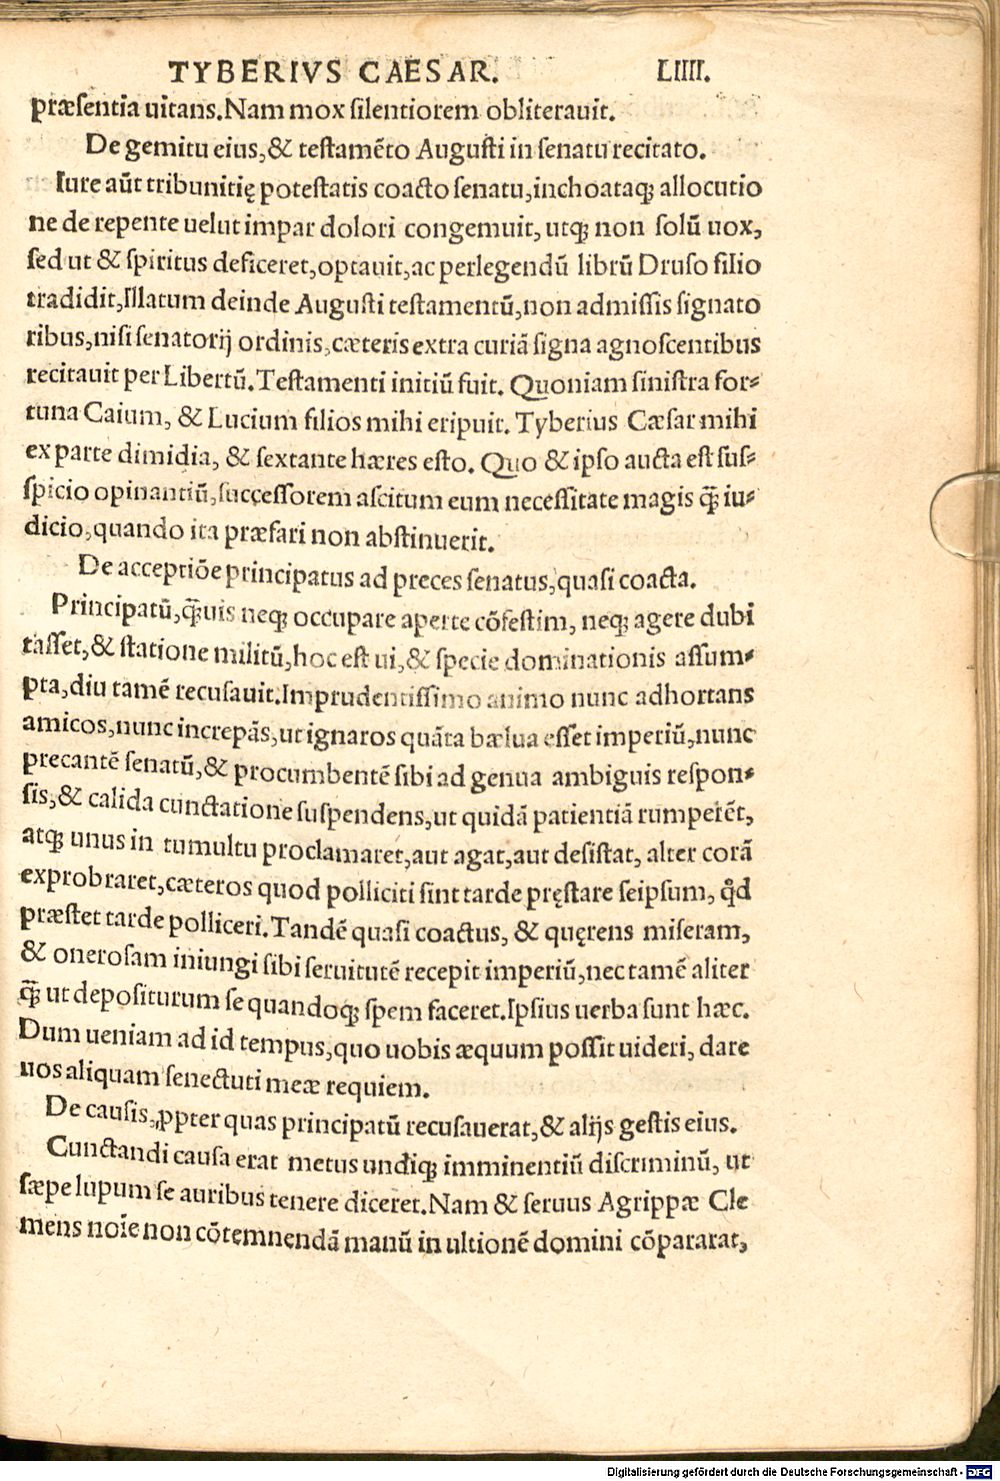 TYBERIVS CAESAR. LIIII.
præsentia uitans. Nam mox silentiorem obliterauit.
De gemitu eius, & testamẽto Augusti in senatu recitato.
Iure aũt tribunitię potestatis coacto senatu, inchoataqꝫ allocutio
ne de repente uelut impar dolori congemuit, utqꝫ non solũ uox,
sed ut & spiritus deficeret, optauit, ac perlegendũ librũ Druso filio
tradidit, Illatum deinde Augusti testamentũ, non admissis signato
ribus, nisi senatorij ordinis, cæteris extra curiã signa agnoscentibus
recitauit per Libertũ. Testamenti initiũ fuit. Quoniam sinistra for⸗
tuna Caium, & Lucium filios mihi eripuit. Tyberius Cæsar mihi
ex parte dimidia, & sextante hæres esto. Quo & ipso aucta est sus⸗
spicio opinantiũ, successorem ascitum eum necessitate magis q̃ꝫ iu⸗
dicio, quando ita præfari non abstinuerit.
De acceptiõe principatus ad preces senatus, quasi coacta.
Principatũ, q̃ꝫuis neqꝫ occupare aperte cõfestim, neqꝫ agere dubi
tasset, & statione militũ, hoc est ui, & specie dominationis assum⸗
pta, diu tamẽ recusauit. Imprudentissimo animo nunc adhortans
amicos, nunc increpãs, ut ignaros quãta bælua esset imperiũ, nunc
precantẽ senatũ, & procumbentẽ sibi ad genua ambiguis respon⸗
sis, & calida cunctatione suspendens, ut quidã patientiã rumperẽt,
atqꝫ unus in tumultu proclamaret, aut agat, aut desistat, alter corã
exprobraret, cæteros quod polliciti sint tarde pręstare seipsum, qͦd
præstet tarde polliceri. Tandẽ quasi coactus, & quęrens miseram,
& onerosam iniungi sibi seruitutẽ recepit imperiũ, nec tamẽ aliter
q̃ꝫ ut depositurum se quandoqꝫ spem faceret. Ipsius uerba sunt hæc.
Dum ueniam ad id tempus, quo uobis æquum possit uideri, dare
uos aliquam senectuti meæ requiem.
De causis, ꝓpter quas principatũ recusauerat, & alijs gestis eius.
Cunctandi causa erat metus undiqꝫ imminentiũ discriminũ, ut
sæpe lupum se auribus tenere diceret. Nam & seruus Agrippæ Cle
mens noĩe non cõtemnendã manũ in ultionẽ domini cõpararat,
Digitalisierung gefördert durch die Deutsche Forschungsgemeinschaft - DFG